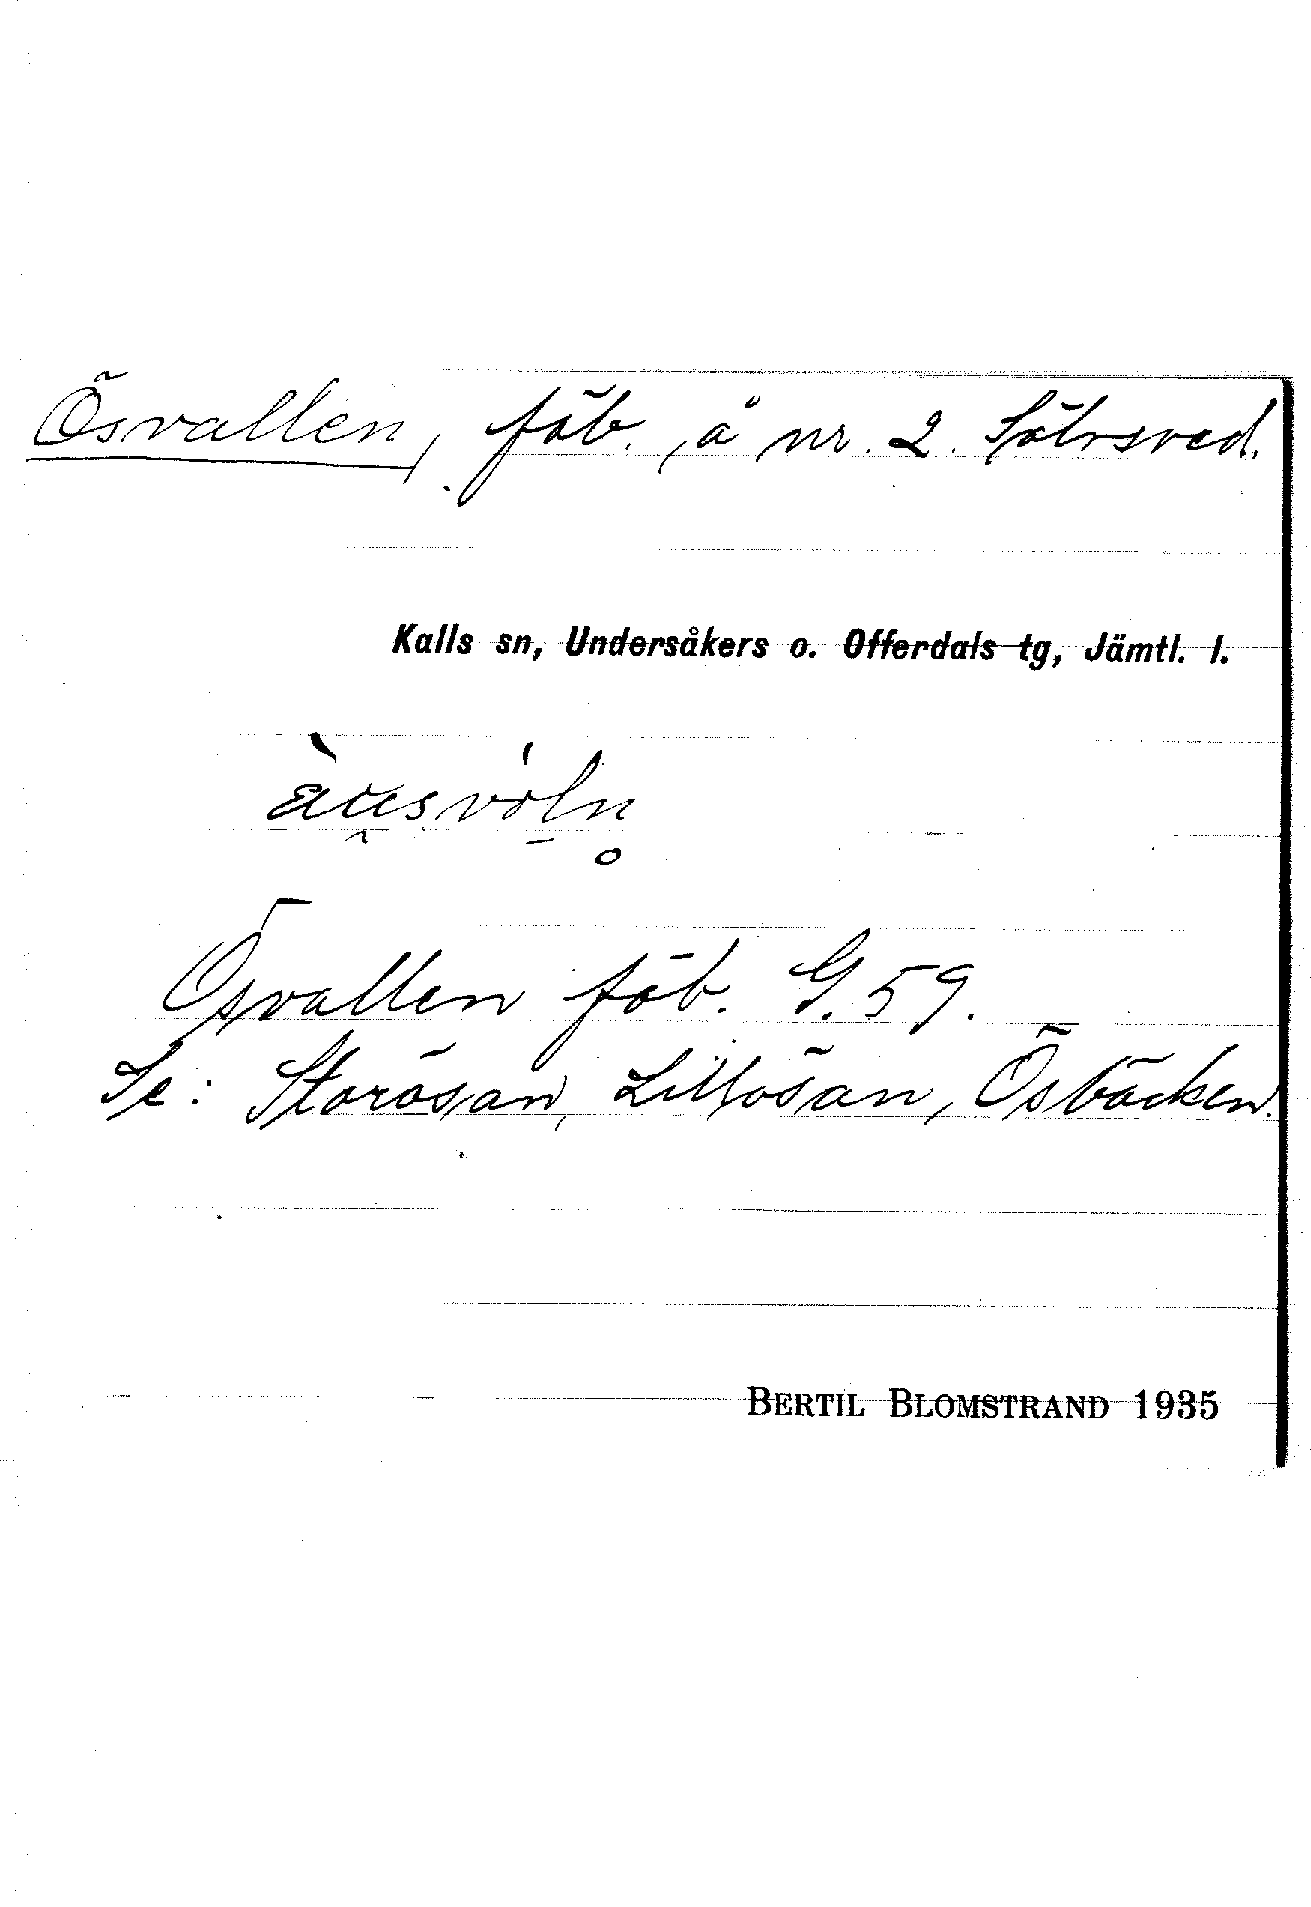 Ösvallen, fäb. å nr. 2. Sölvsved.
Kalls sn, Undersåkers o. Offerdals tg, Jämtl. l.
Ösvallen fäb. G. 59.
Se: Storösan, Lillösan, Ösbäcken.
BERTIL BLOMSTRAND 1935